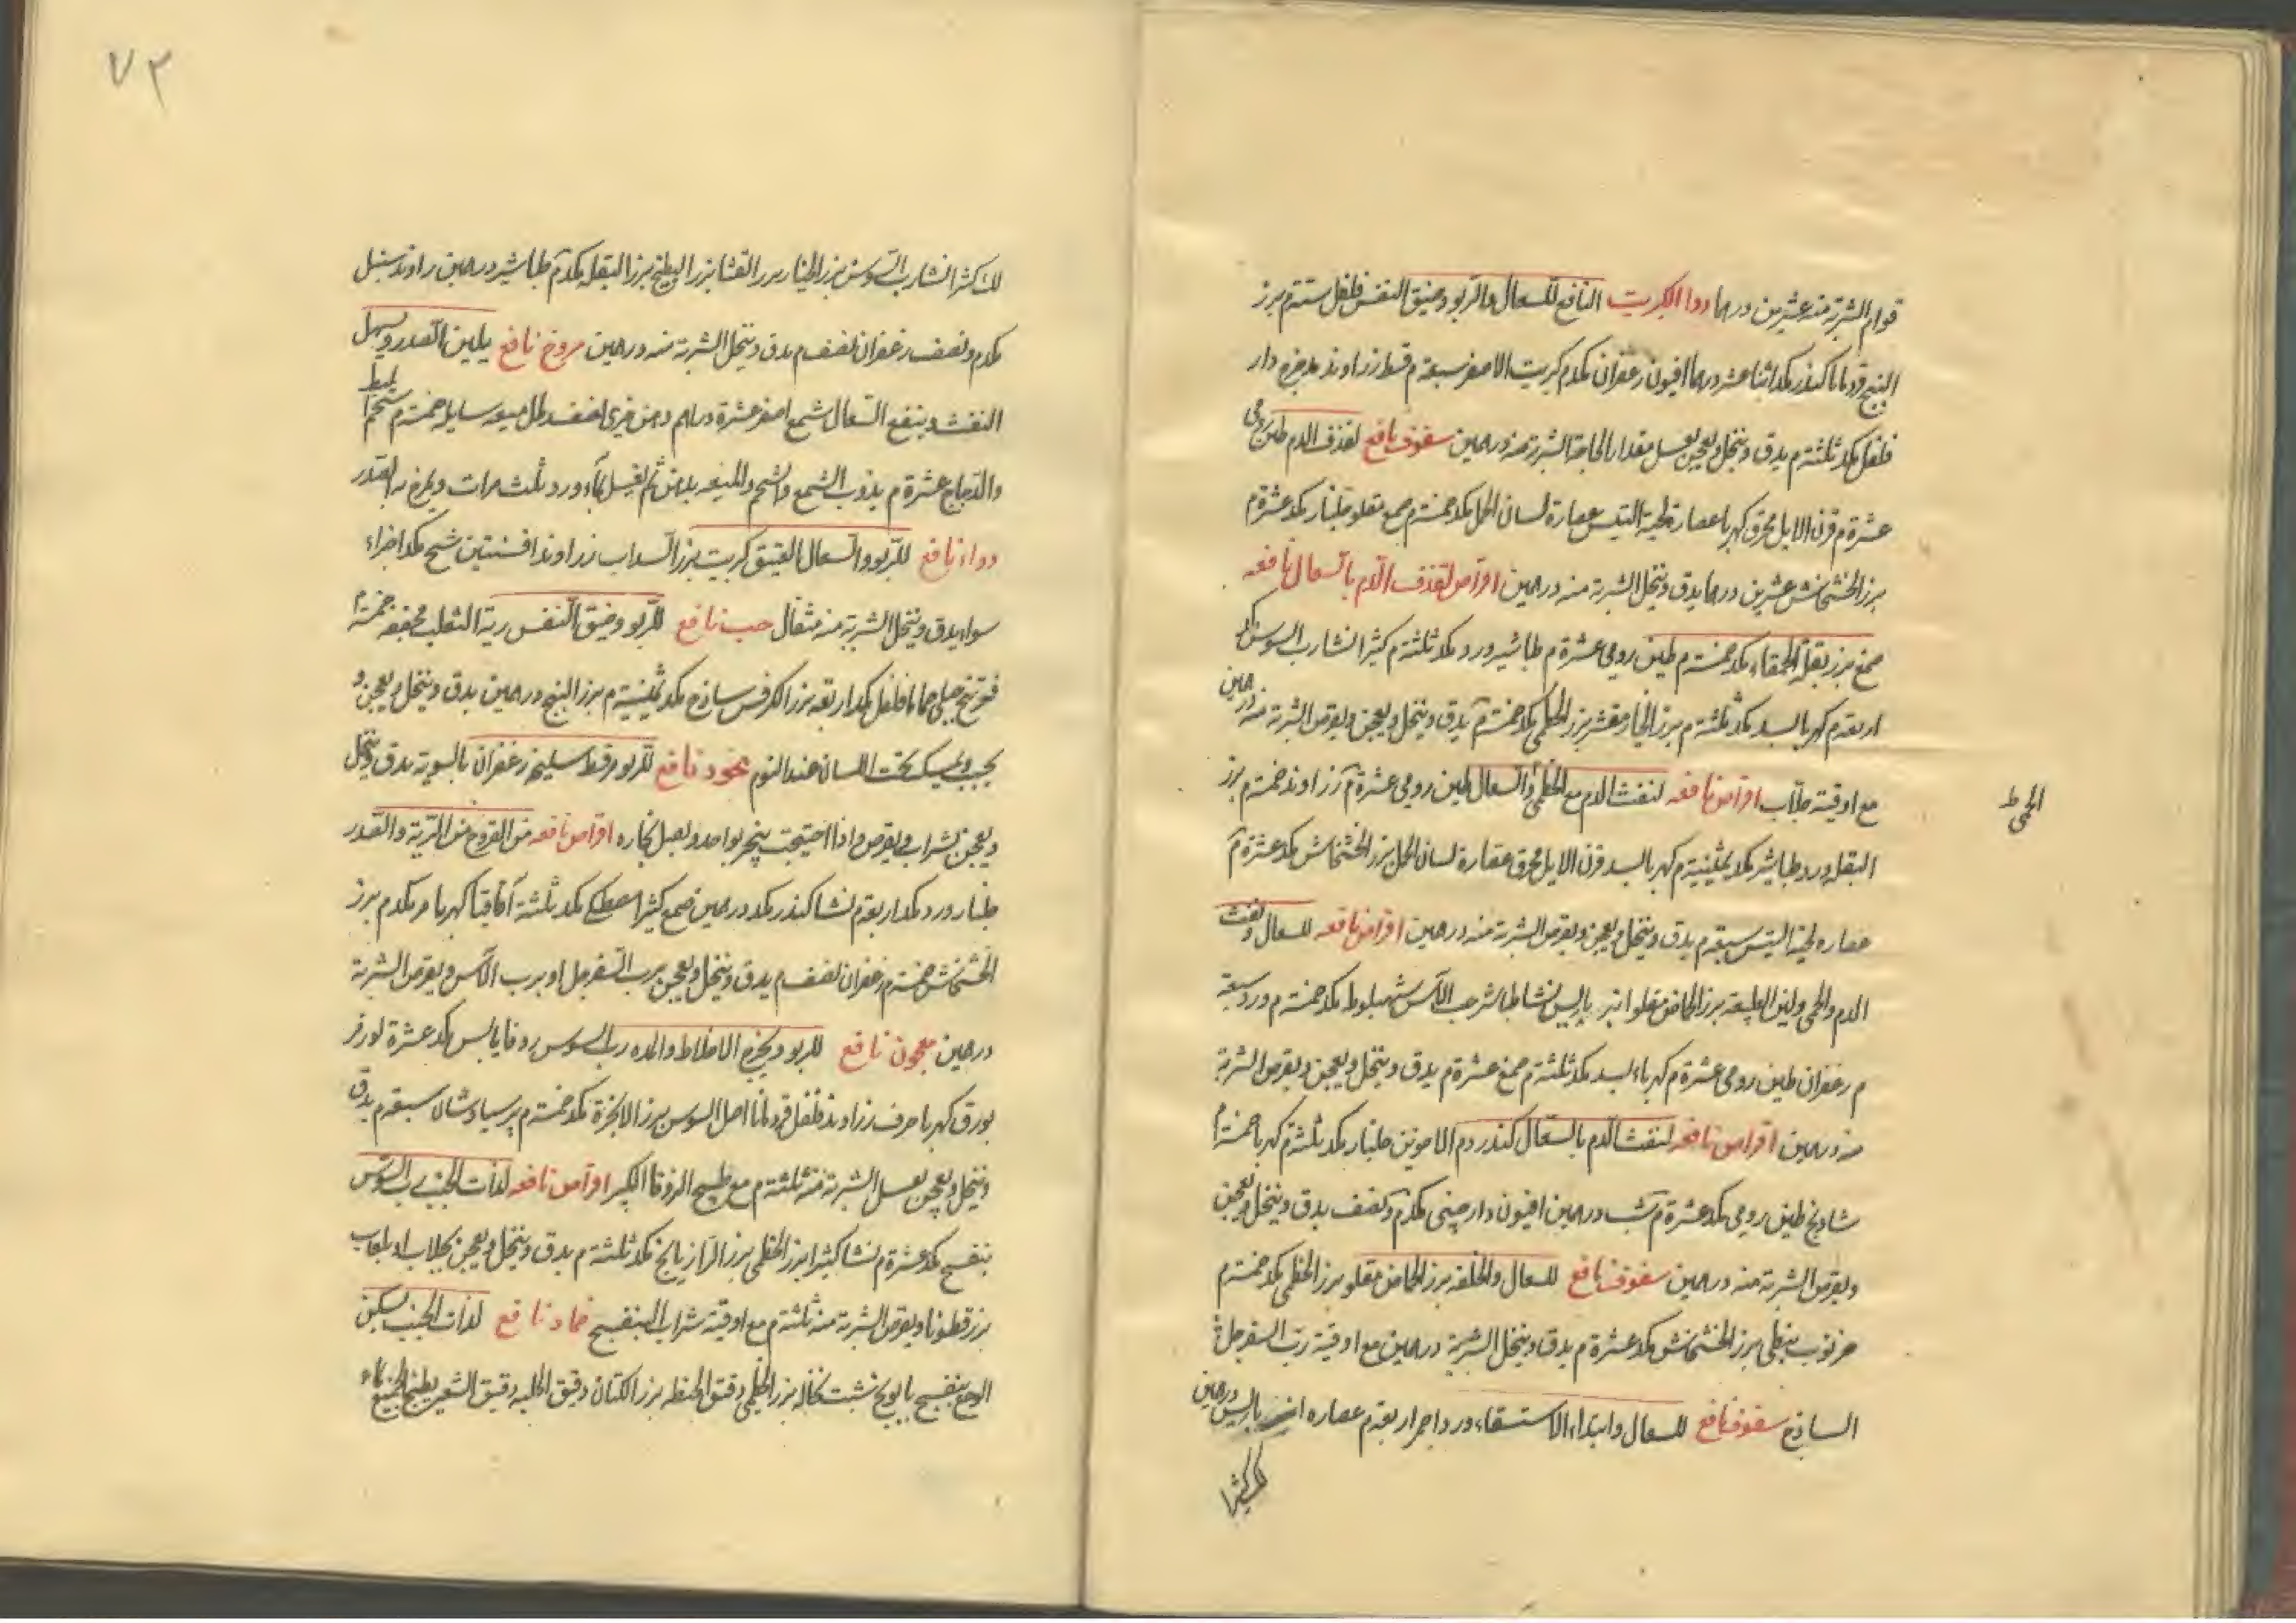 قوام الشربة منه عشرين درهما دوا الكبريت النافع للسعال والربو وضيق النفس فلفل ستة م بزر
البنج قردمانا كندر مكد اثنا عشر درهما افيون زعفران مكدم كبريت الاصفر سبعة م قسط زراوند مدحرج دار
فلفل مكد ثلثة م يدق وينخل ويعجن بعسل مقدار الحاجة الشربة منه درهمين سفوف نافع لقذف الدم طين رومي
عشرة م قرن الايل محرق كهربا عصارة لحية التيس عصارة لسان الحمل مكد خمسة م صمغ مقلو جلنار مكد عشرة م
بزر الخشخاش عشرين درهما يدق وينخل الشربة منه درهمين اقراص لقذف الدم بالسعال نافعه
صمغ بزر بقلة الحمقاء مكد خمسة م طين رومي عشرة م طباشير ورد مكد ثلثة م كثيرا نشا رب السوس مكد
اربعة م كهربا بسد مكد ثلثة م بزر الخيار مقشر بزر الخطمي مكد خمسة م يدق وينخل ويعجن ويقرص الشربة منه درهمين
مع اوقية جلاب اقراص نافعه لنفث الدم مع الخطمي والسعال طين رومي عشرة م زراوند خمسة م بزر
الحمى ط
البقله ورد طباشير مكد ثمنية م كهربا بسد قرن الايل محرق عصارة لسان الحمل بزر الخشخاش مكد عشرة م
عصاره لحية التيس سبعة م يدق وينخل ويعجن ويقرص الشربة منه درهمين اقراص نافعه للسعال ونفث
الدم والحمى ولين الطبيعة بزر الحماض مقلو انبر باريس نشا طباشر حب الآس شهبلوط مكد خمسة م ورد سبعة
م زعفران طين رومي عشرة م كهرباء بسد مكد ثلثة م صمغ عشرة م يدق وينخل ويعجن ويقرص الشربة
منه درهمين اقراص نافعه لنفث الدم بالسعال كندر دم الاخوين جلنار مكد ثلثة م كهربا خمسة م
شادنج طين رومي مكد عشرة م شب درهمين افيون دارچيني مكدم ونصف يدق وينخل ويعجن
ويقرص الشربة منه درهمين سفوف نافع للسعال والخلفه بزر الحماض مقلو بزر الخطمي مكد خمسة م
خرنوب نبطي بزر الخشخاش مكد عشرة م يدق وينخل الشربة درهمين مع اوقية رب السفرجل
الساذج سفوف نافع للسعال وابتداء الاستسقاء ورد احمر اربعة م عصاره انبر باريس درهمين
لك كثيرا
٧٢
لك كثرا نشا رب السوس بزر الخيار بزر القثا بزر البطيخ بزر البقله مكدم طباشير درهمين راوند سنبل
مكدم ونصف زعفران نصف م يدق وينخل الشربة منه درهمين مروخ نافع يلين الصدر ويسهل
النفث وينفع السعال شمع اصفر عشرة دراهم دهن خيري نصف رطل ميعه سايله خمسة م شحم البط
والدجاج عشرة م يذوب الشمع والشحم والميعه بدهن ثم يغسل بماء ورد ثلث مرات ويمرخ به الصدر
دواء نافع للربو والسعال العتيق كبريت بزر السداب زراوند افسنتين شيح مكد اجزاء
سواء يدق وينخل الشربة منه مثقال حب نافع للربو وضيق النفس رية الثعلب مجففه خمسة م
فوتنج جبلي حماما فلفل مكد اربعه بزر الكرفس ساذج مكد ثمنية م بزر البنج درهمين يدق وينخل ويعجن و
يحبب ويمسك تحت اللسان عند النوم بخور نافع للربو مر قسط سليخه زعفران بالسوية يدق وينخل
ويعجن بشراب ويقرص واذا احتيجت يبخر بواحد ويصل بخاره اقراص نافعه من القروح من الرية والصدر
جلنار ورد مكد اربعة م نشا كندر مكد درهمين صمغ كثيرا مصطكي مكد ثلثة م اقاقيا كهربا مر مكدم بزر
الخشخاش خمسة م زعفران نصف م يدق وينخل ويعجن برب السفرجل او برب الآس ويقرص الشربة
درهمين معجون نافع للربو ويخرج الاخلاط والمده رب السوس زوفا يابس مكد عشرة لوز مر
بورق كهربا حرف زراوند فلفل قردمانا اصل السوس بزر الانجرة مكد خمسة م پرسياوشان سبعة م يدق
وينخل ويعجن بعسل الشربة منه ثلثة م مع طبيخ الزوفا الكبير اقراص نافعه لذات الجنب رب السوس
بنفسج مكد عشرة م نشا كثيرا بزر الخطمي بزر الرازيانج مكد ثلثة م يدق وينخل ويعجن بجلاب او بلعاب
بزر قطونا ويقرص الشربة منه ثلثة م مع اوقية شراب البنفسج ضماد نافع لذات الجنب يسكن
الوجع بنفسج بابونج شبت نخاله بزر الخطمي دقيق الحنطه بزر الكتان دقيق الحلبه دقيق الشعير يطبخ الجميع بماء